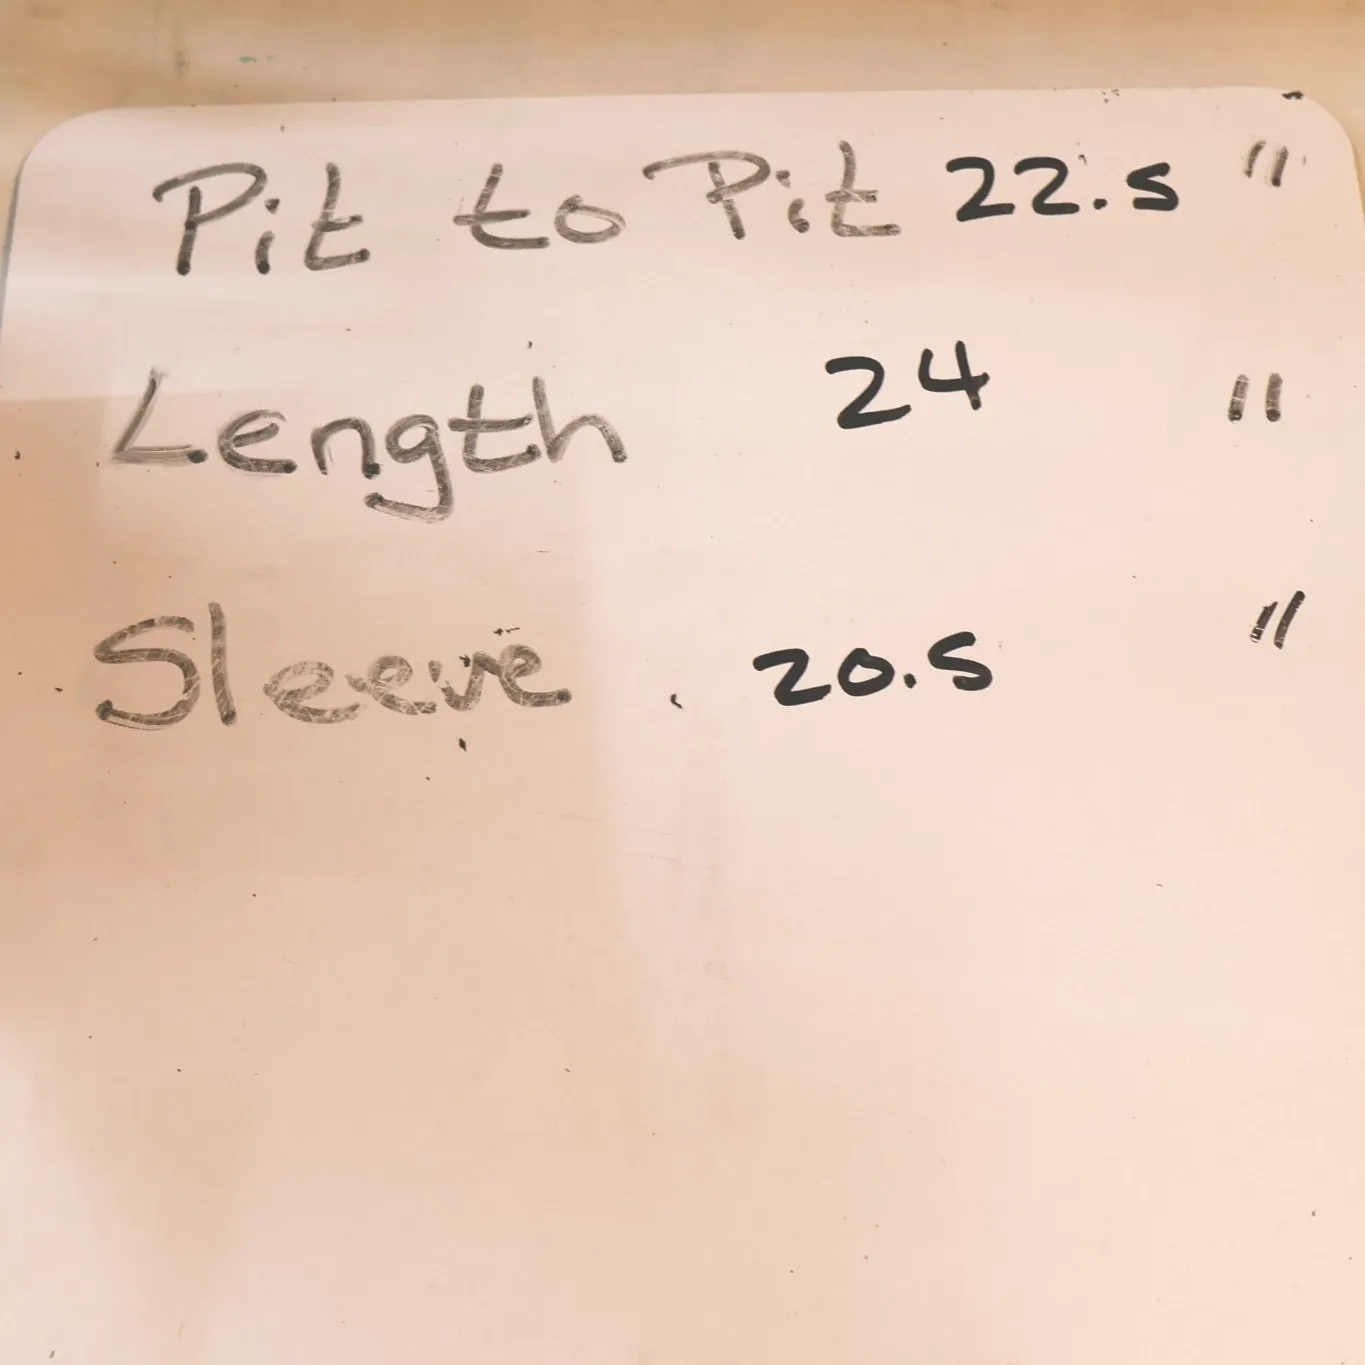 Pit to Pit 22.5 "
Length 24 "
Sleeve 20.5 "